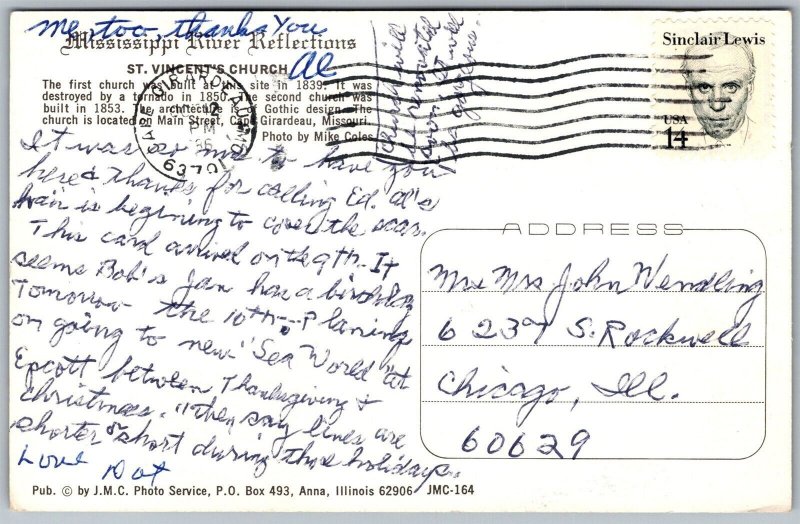 me, too, thanks You
Al
Mississippi River Reflections
ST. VINCENT'S CHURCH
The first church was built at this site in 1839. It was
destroyed by a tornado in 1850. The second church was
built in 1853. The architecture is Gothic design. The
church is located on Main Street, Cape Girardeau, Missouri.
Photo by Mike Coles
church will
be
soon. It will
be gorgeous.
Sinclair Lewis
USA
14
PM
It was so nice to have you
here & thanks for calling Ed. Al's
hair is begining to cover the scar.
This card arrived on the 9th. It
seems Bob's Jan has a birthday
Tomorrow the 10th--Planing
on going to new "Sea World" at
Epcott between Thanksgiving &
christmas. They say lines are
shorter or short during those holidays.
Love Dot
ADDRESS
Mr & Mrs John Wendling
6239 S. Rockwell
Chicago, Ill.
60629
Pub. © by J.M.C. Photo Service, P.O. Box 493, Anna, Illinois 62906 JMC-164